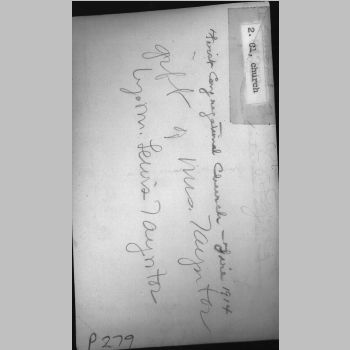 2. Cl, church
First Congregational Church - Fire 1914
gift of Mrs. Tayntor
Lewis Tayntor
P279